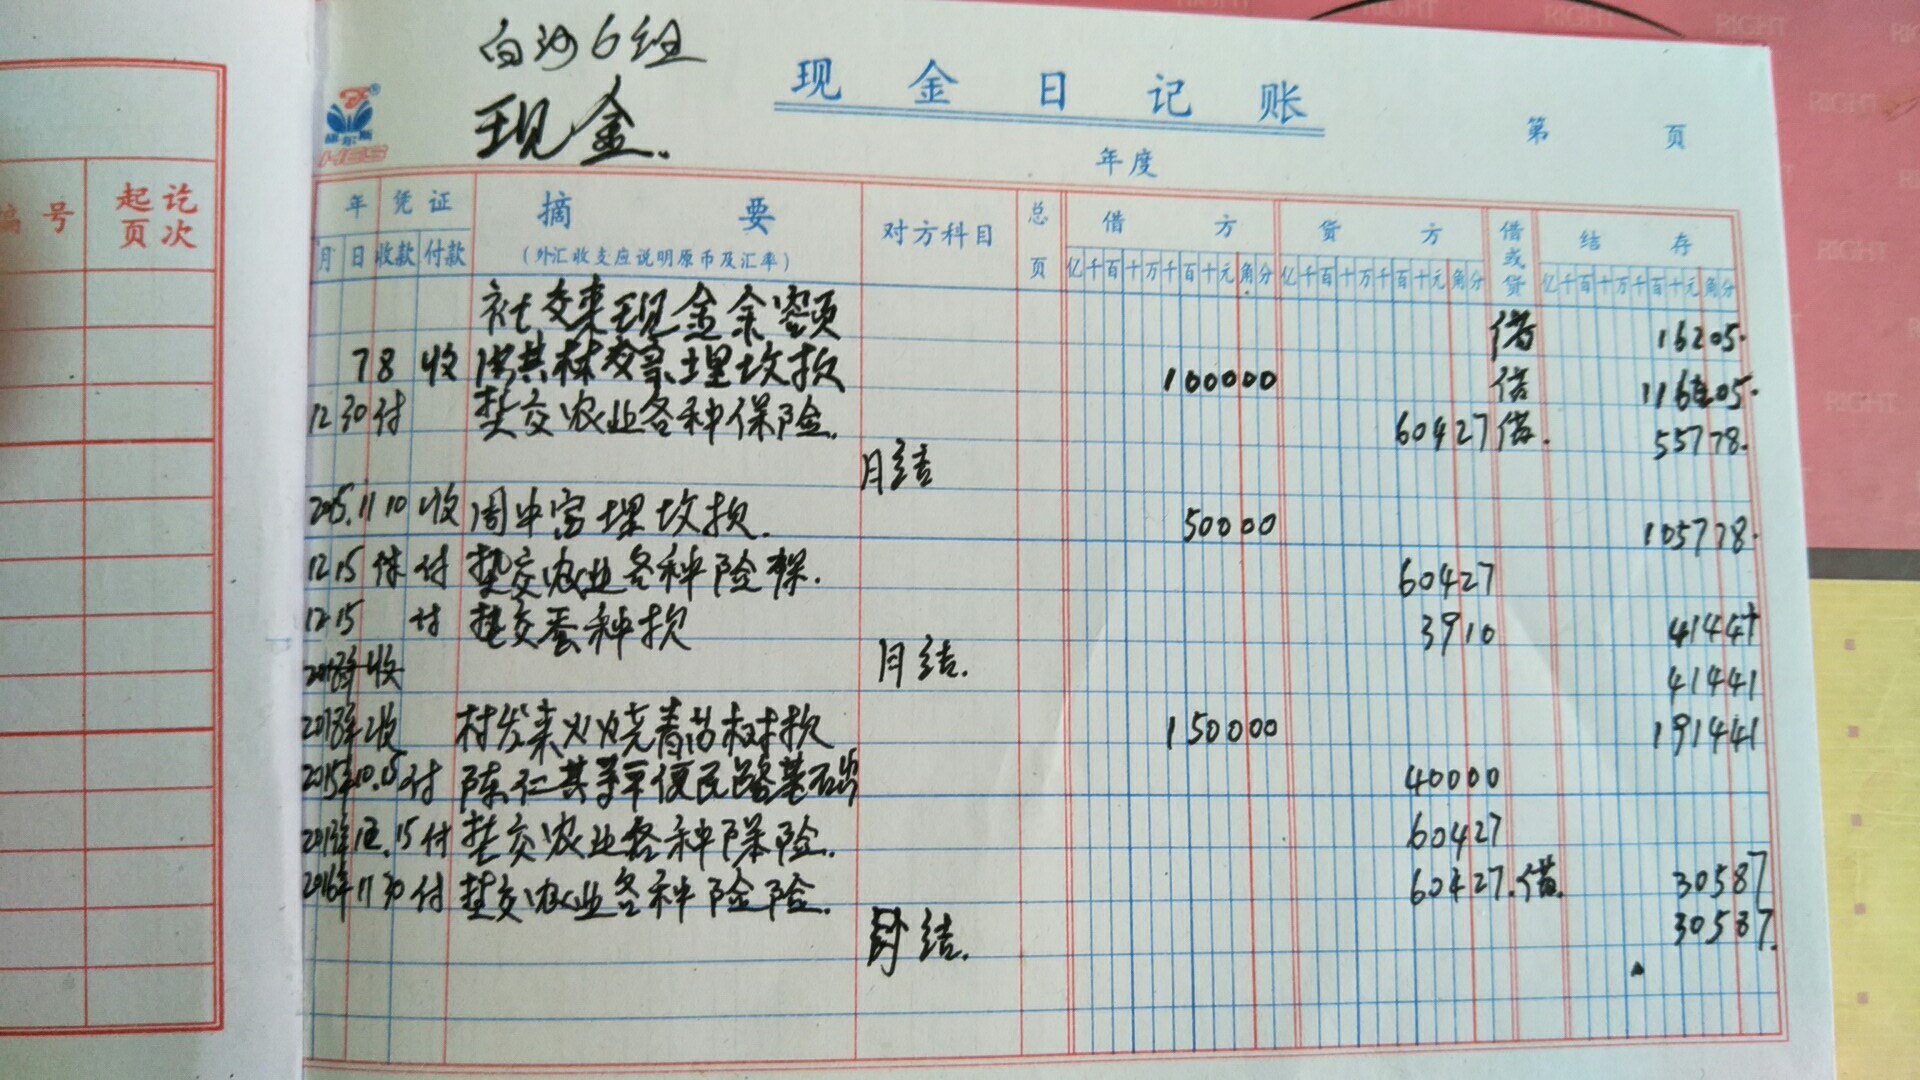 白沙6组
现金日记账
现金.
第 页
年度
编号 起讫页次
年 凭证 摘要 对方科目 总页 借方 贷方 借或贷 结存
月 日 收款 付款 (外汇收支应说明原币及汇率) 亿千百十万千百十元角分 亿千百十万千百十元角分 亿千百十万千百十元角分
社交来现金余额 借 16205.
7 8 收 埋坟损 100000 借 116205.
12 30 付 垫交农业各种保险. 60427 借. 55778.
月结
2015.11 10 收 周中富埋坟损. 50000 105778.
12 15 付 垫交农业各种险 60427
12 15 付 垫交蚕种损 3910 41441
2018年收 月结. 41441
2018年收 村发来火烧青苗树损 150000 191441
2015年10.15付 陈仁其 便民路基石 40000
15付 垫交农业各种保险. 60427
2016年11 30付 垫交农业各种险险. 60427. 借. 30587
结. 30587.